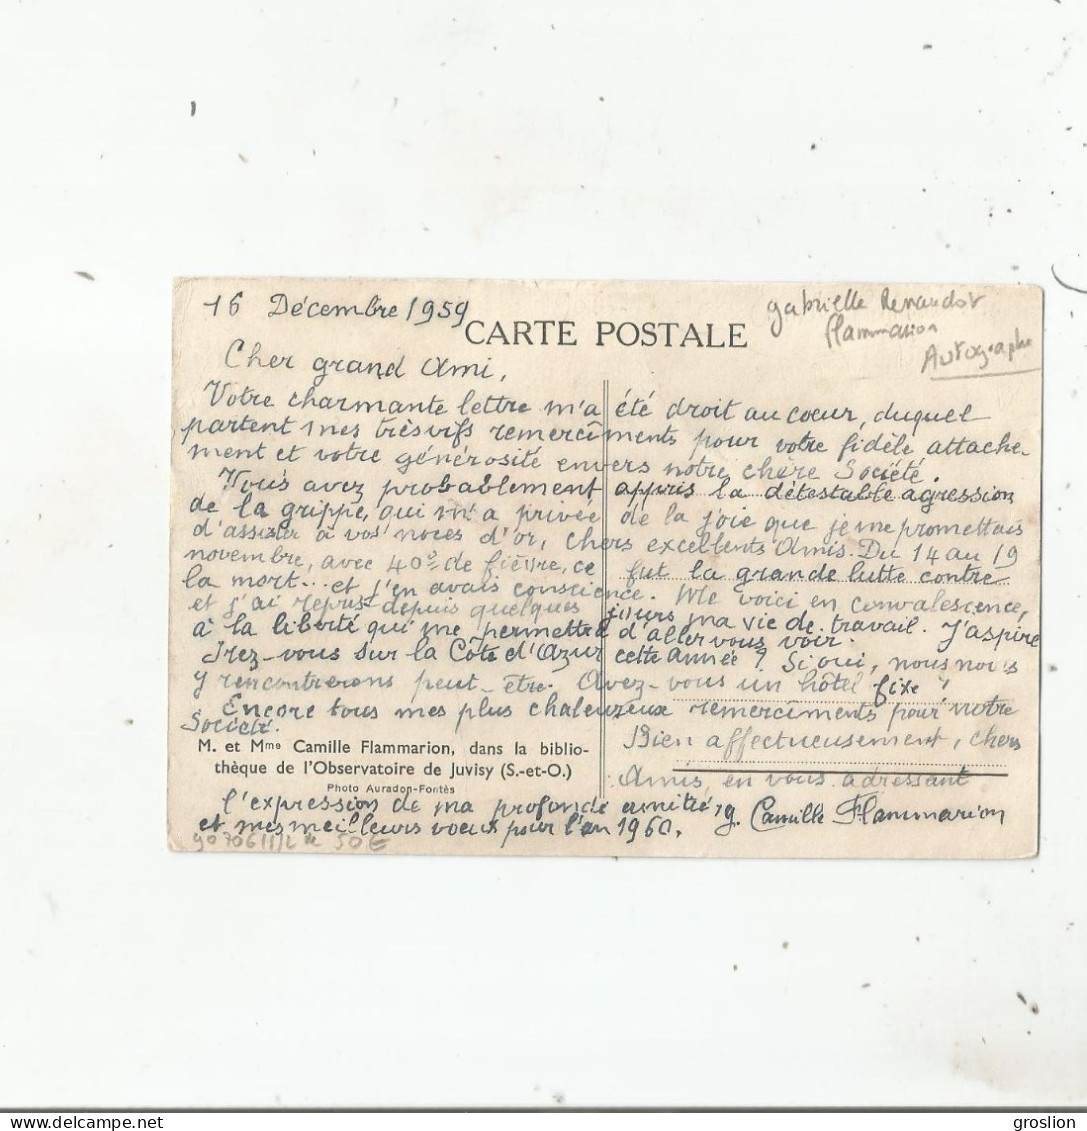 16 Décembre 1959
CARTE POSTALE
Gabrielle Renaudot
Flammarion
Autographe
Cher grand Ami,
Votre charmante lettre m'a été droit au coeur, duquel
partent mes très vifs remercîments pour votre fidèle attache-
ment et votre générosité envers notre chère Société.
Vous avez probablement appris la détestable agression
de la grippe, qui m'a privée de la joie que je me promettais
d'assister à vos noces d'or, chers excellents Amis. Du 14 au 19
novembre, avec 40°5 de fièvre, ce fut la grande lutte contre
la mort... et j'en avais conscience. Me voici en convalescence,
et j'ai repris depuis quelques jours ma vie de travail. J'aspire
à la liberté qui me permettra d'aller vous voir.
Irez-vous sur la Côte d'Azur cette année ? Si oui, nous nous
y rencontrerons peut-être. Avez-vous un hôtel fixe ?
Encore tous mes plus chaleureux remercîments pour notre
Société.
Bien affectueusement, chers
Amis, en vous adressant
M. et Mme Camille Flammarion, dans la biblio-
thèque de l'Observatoire de Juvisy (S.-et-O.)
Photo Auradon-Fontès
l'expression de ma profonde amitié, g. Camille Flammarion
et mes meilleurs voeux pour l'an 1960.
50€
groslion